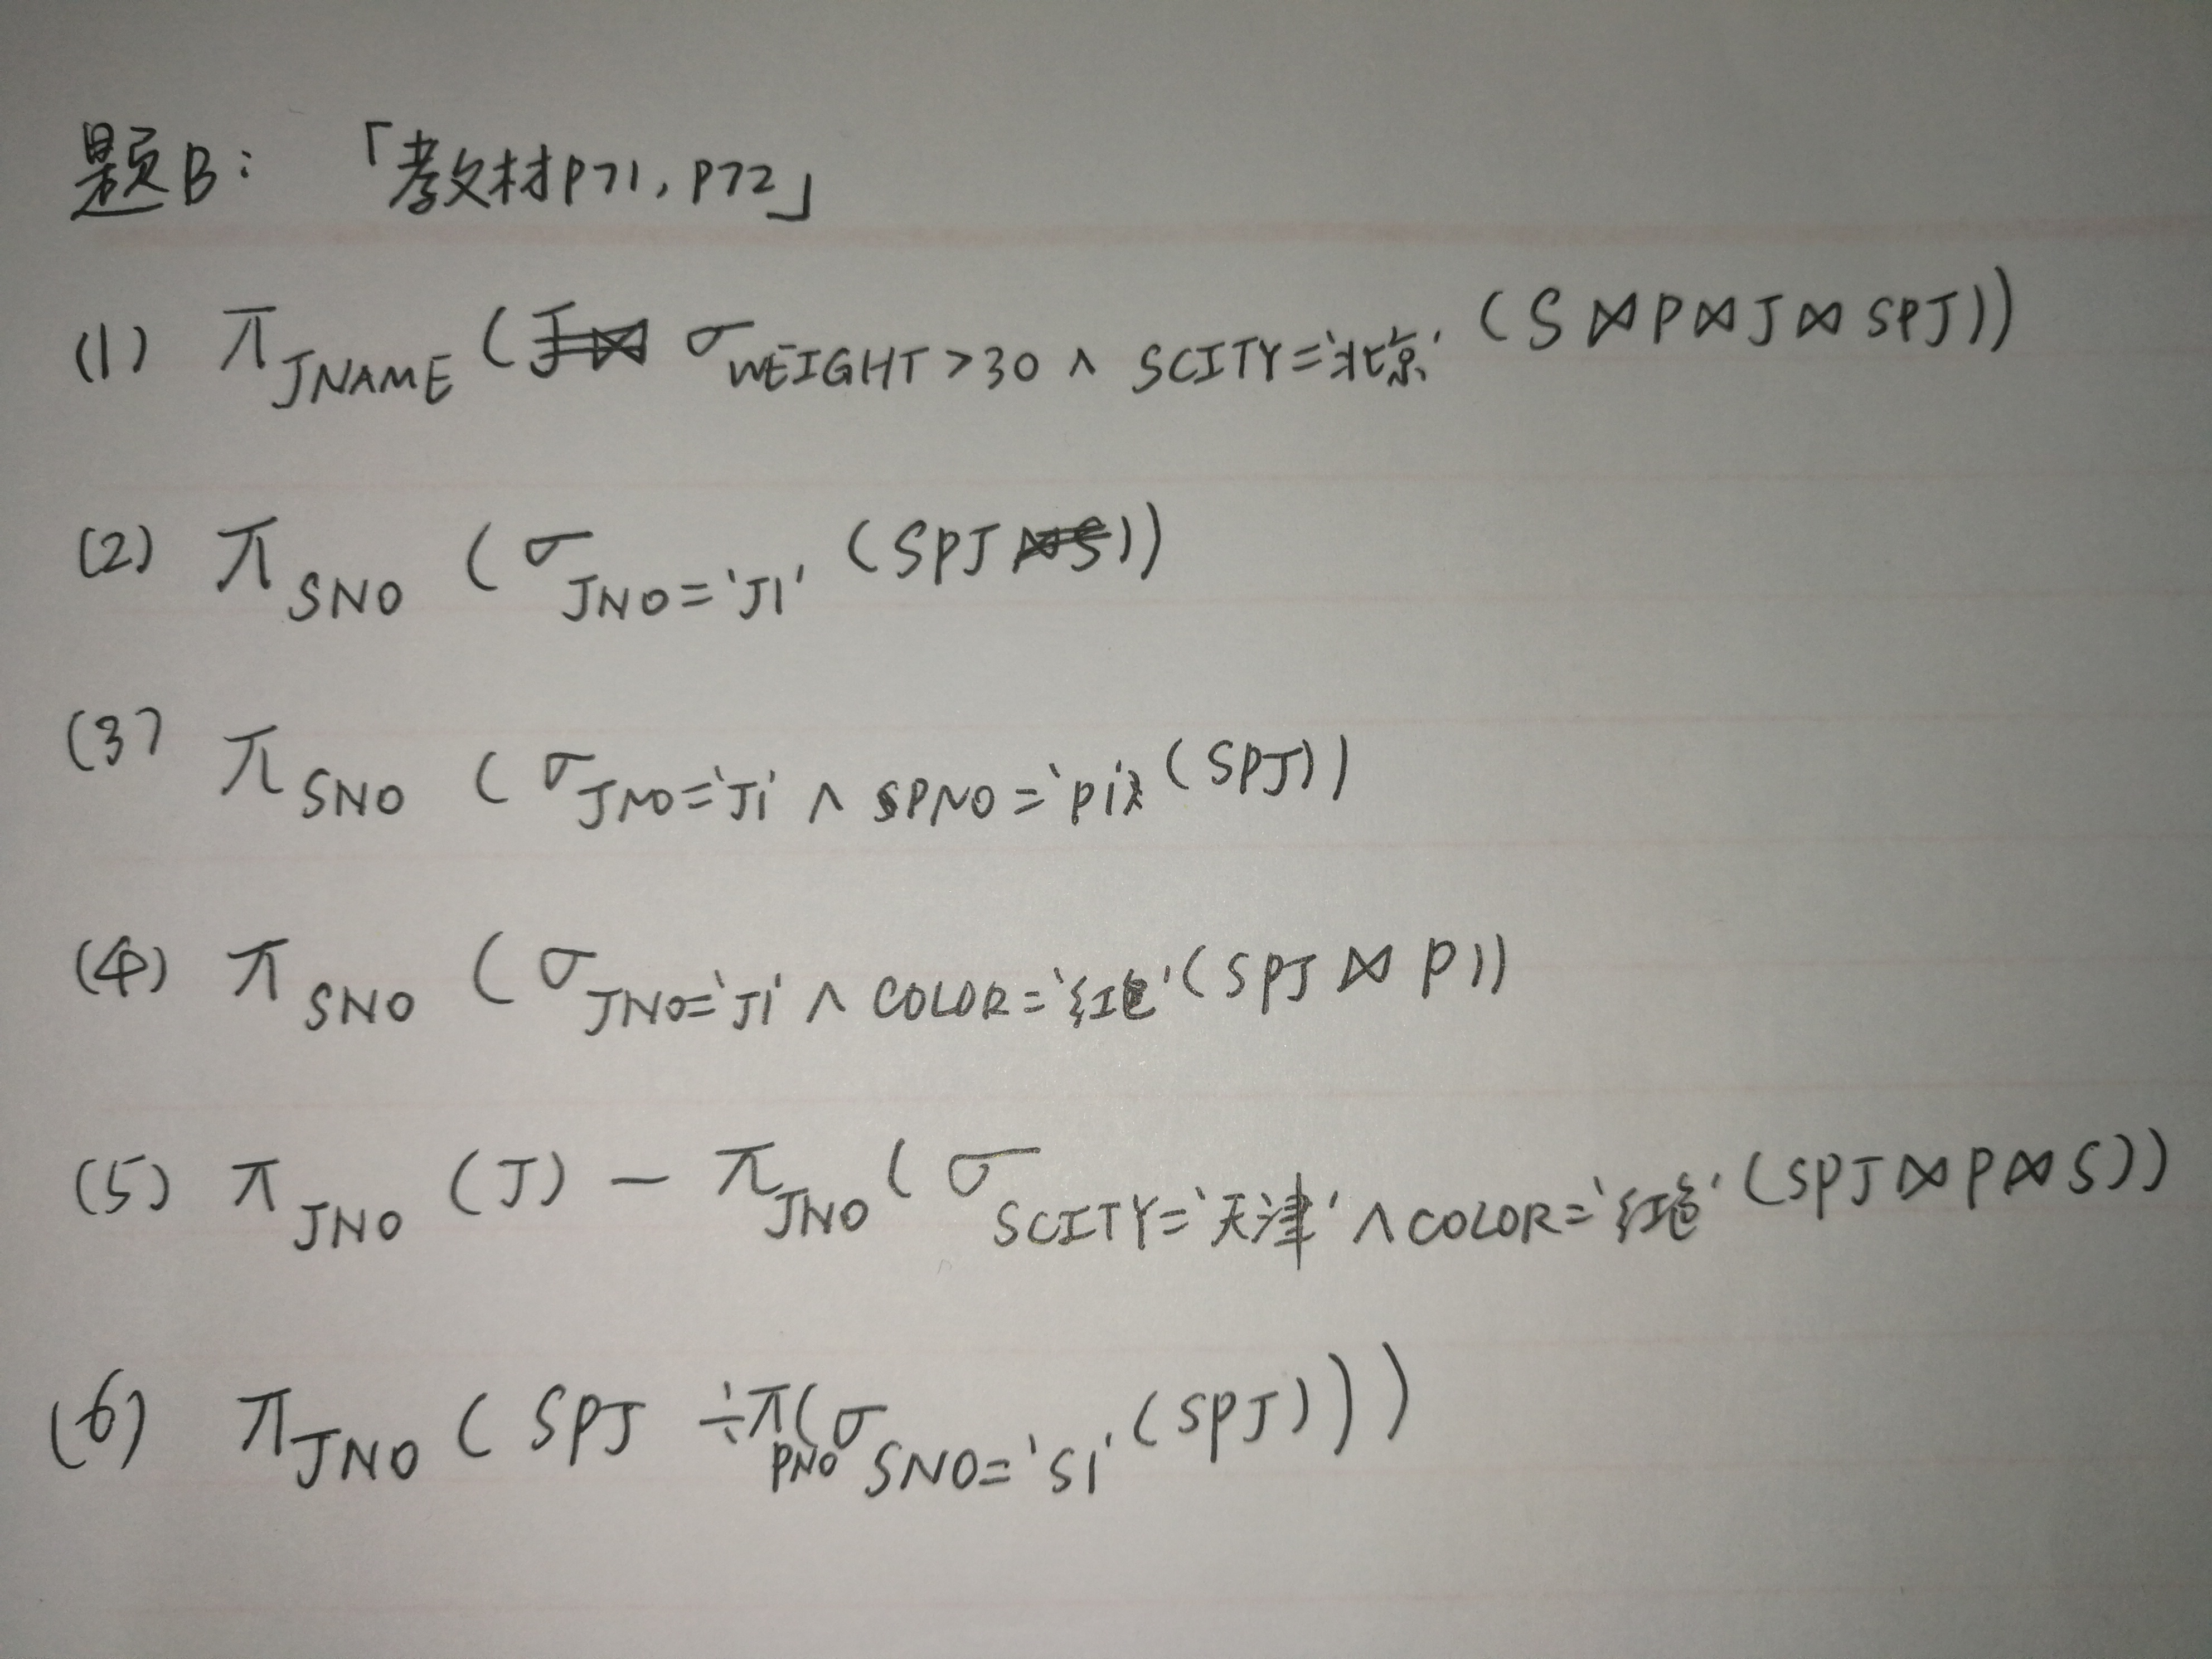 题B: 「教材P71, P72」
(1) π JNAME ( σ WEIGHT>30 ∧ SCITY='北京' (S⋈P⋈J⋈SPJ))
(2) π SNO ( σ JNO='J1' (SPJ))
(3) π SNO ( σ JNO='J1' ∧ PNO='P1' (SPJ))
(4) π SNO ( σ JNO='J1' ∧ COLOR='红色' (SPJ⋈P))
(5) π JNO (J) — π JNO ( σ SCITY='天津' ∧ COLOR='红色' (SPJ⋈P⋈S))
(6) π JNO ( SPJ ÷ π PNO ( σ SNO='S1' (SPJ)))